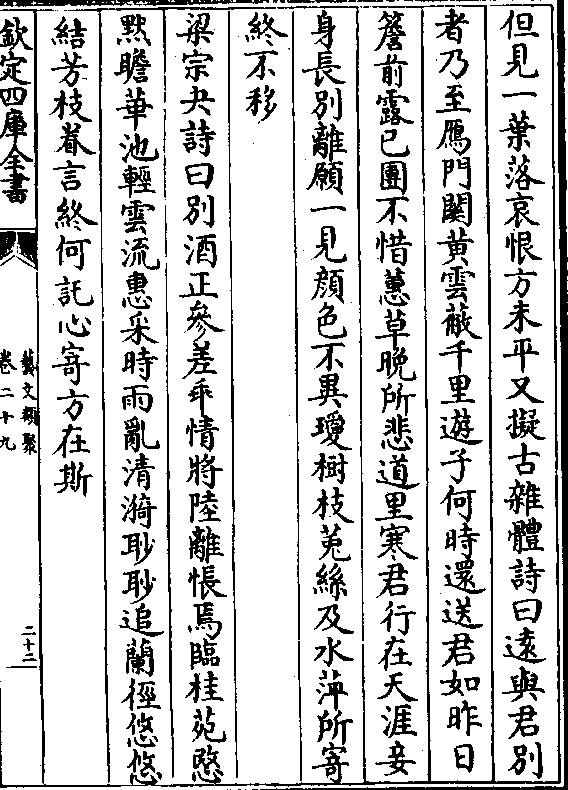 但見一葉落哀恨方未平又擬古雜體詩曰遠與君别
者乃至鴈門關黄雲蔽千里遊子何時還送君如昨日
簷前露已團不惜蕙草晚所悲道里寒君行在天涯妾
身長别離願一見顔色不異瓊樹枝菟絲及水萍所寄
終不移
梁宗夬詩曰别酒正參差乖情將陸離悵焉臨桂苑愍
黙瞻華池輕雲流惠采時雨亂清漪眇眇追蘭徑悠悠
結芳枝眷言終何託心寄方在斯
欽定四庫全書
藝文類聚
卷二十九
二十三